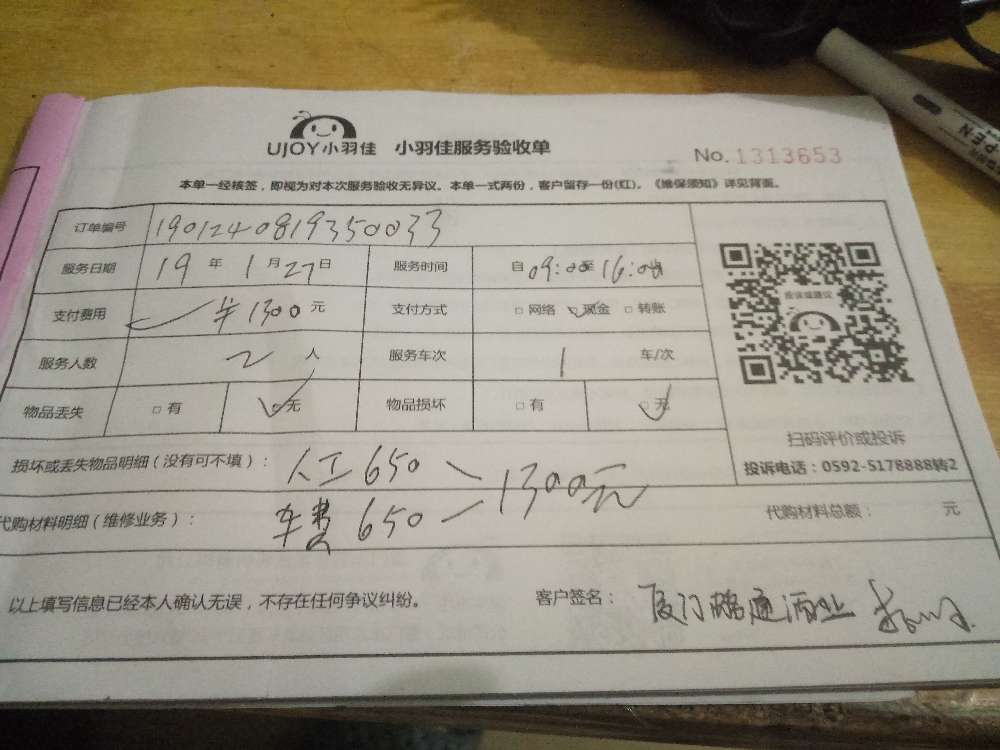 UJOY小羽佳 小羽佳服务验收单
No. 1313653
本单一经核签，即视为对本次服务验收无异议。本单一式两份，客户留存一份(红)。《维保须知》详见背面。
订单编号 1901240819350033
服务日期 19 年 1 月 27 日 服务时间 自 09:00 至 16:00
支付费用 ¥1300 元 支付方式 □ 网络 □ 现金 □ 转账
服务人数 2 人 服务车次 1 车/次
物品丢失 □ 有 □ 无 物品损坏 □ 有 □ 无
投诉或建议
扫码评价或投诉
投诉电话：0592-5178888转2
损坏或丢失物品明细（没有可不填）： 人工650
1300元
代购材料明细（维修业务）： 车费 650 代购材料总额： 元
以上填写信息已经本人确认无误，不存在任何争议纠纷。 客户签名： 厦门鹏通酒业
PEN